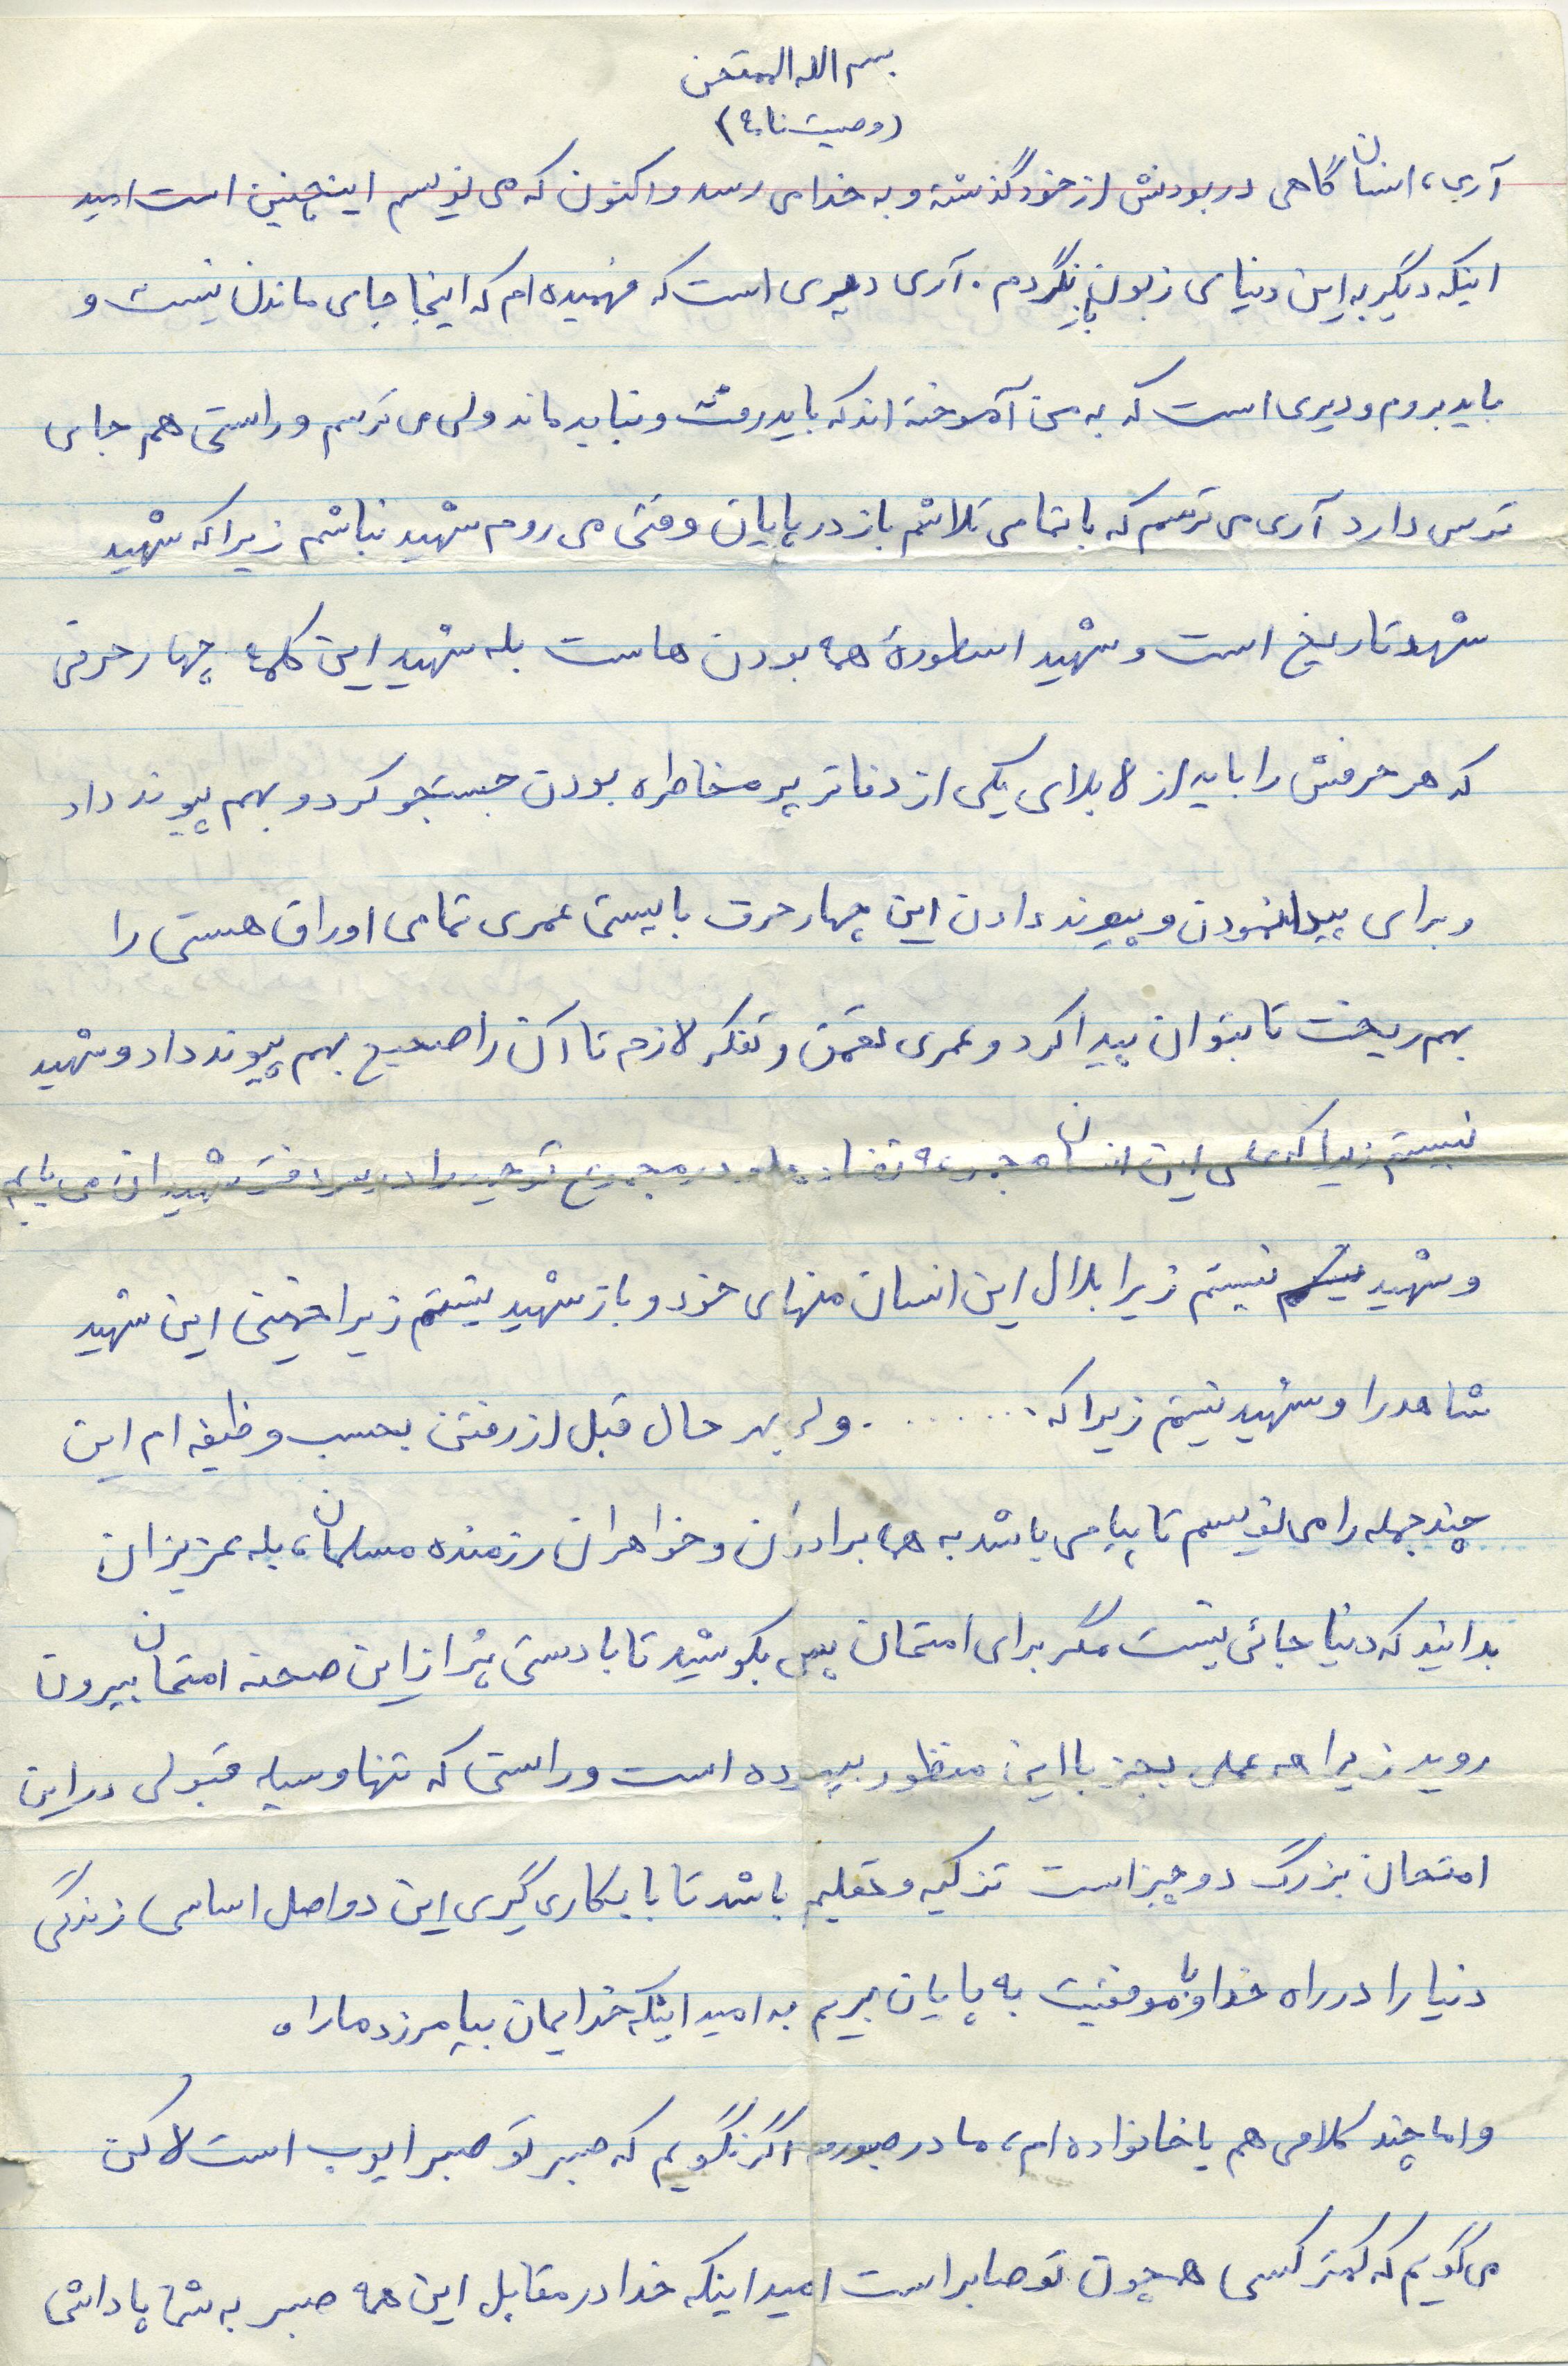 بسم الله الممتحن
(وصیت نامه)
آری، انسان گاهی در بودنش از خود گذشته و به خدا می رسد و اکنون که می نویسم اینچنین است امید
اینکه دیگر به این دنیای زبون باز نگردم. آری دیری است که فهمیده ام که اینجا جای ماندن نیست و
باید بروم و دیری است که به من آموخته اند که باید رفت و نباید ماند ولی می ترسم و راستی هم جای
ترس دارد آری می ترسم که با تمامی تلاشم باز در پایان وقتی می روم شهید نباشم زیرا که شهید
شهود تاریخ است و شهید اسطورهٔ همه بودن هاست بله شهید این کلمه چهار حرفی
که هر حرفش را باید از لابلای یکی از دفاتر پر مخاطره بودن جستجو کرد و بهم پیوند داد
و برای پیدا نمودن و پیوند دادن این چهار حرف بایستی عمری تمامی اوراق هستی را
بهم ریخت تا بتوان پیدا کرد و عمری تعمق و تفکر لازم تا آن را صحیح بهم پیوند داد و شهید
نیستم زیرا که علی این انسان مجموعه تضاد ها و در مجموع توحید را در سر دفتر شهیدان می یابم
و شهید نیستم زیرا بلال این انسان منهای خود و باز شهید نیستم زیرا خمینی این شهید
شاهد را و شهید نیستم زیرا که . . . . . . . ولی بهر حال قبل از رفتن بحسب وظیفه ام این
چند جمله را می نویسم تا پیامی باشد به همه برادران و خواهران رزمنده مسلمان، بله عزیزان
بدانید که دنیا جائی نیست مگر برای امتحان پس بکوشید تا با دستی پُر از این صحنه امتحان بیرون
روید زیرا هر عملی بجز با این منظور بیهوده است و راستی که تنها وسیله قبولی در این
امتحان بزرگ دو چیز است تزکیه و تعلیم باشد تا با بکاری گیری این دو اصل اساسی زندگی
دنیا را در راه خدا و با موفقیت به پایان بریم به امید اینکه خدایمان بیامرزد ما را.
و اما چند کلامی هم با خانواده ام، مادر صبورم اگر نگویم که صبر تو صبر ایوب است لاکن
می گویم که کمتر کسی همچون تو صابر است امید اینکه خدا در مقابل این همه صبر به شما پاداشی